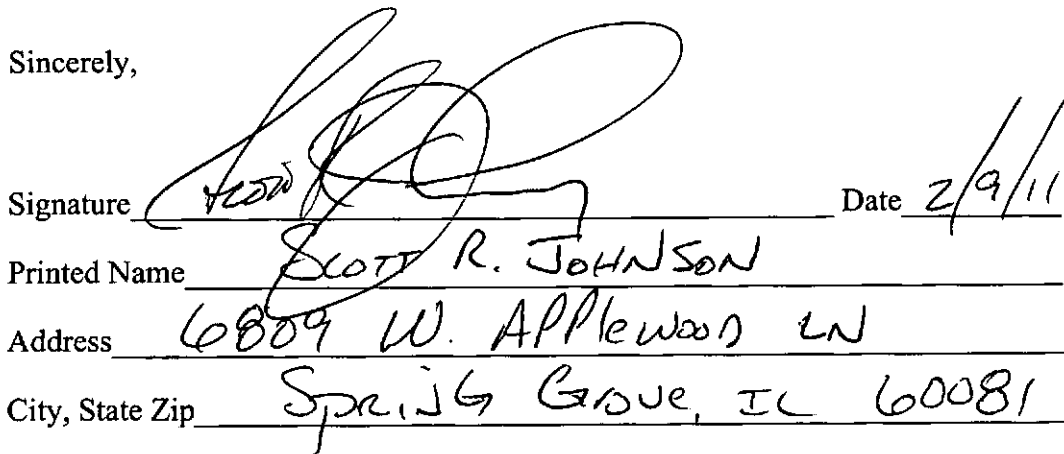 Sincerely,
Signature Date 2/9/11
Printed Name Scott R. Johnson
Address 6809 W. Applewood LN
City, State Zip Spring Grove, IL 60081